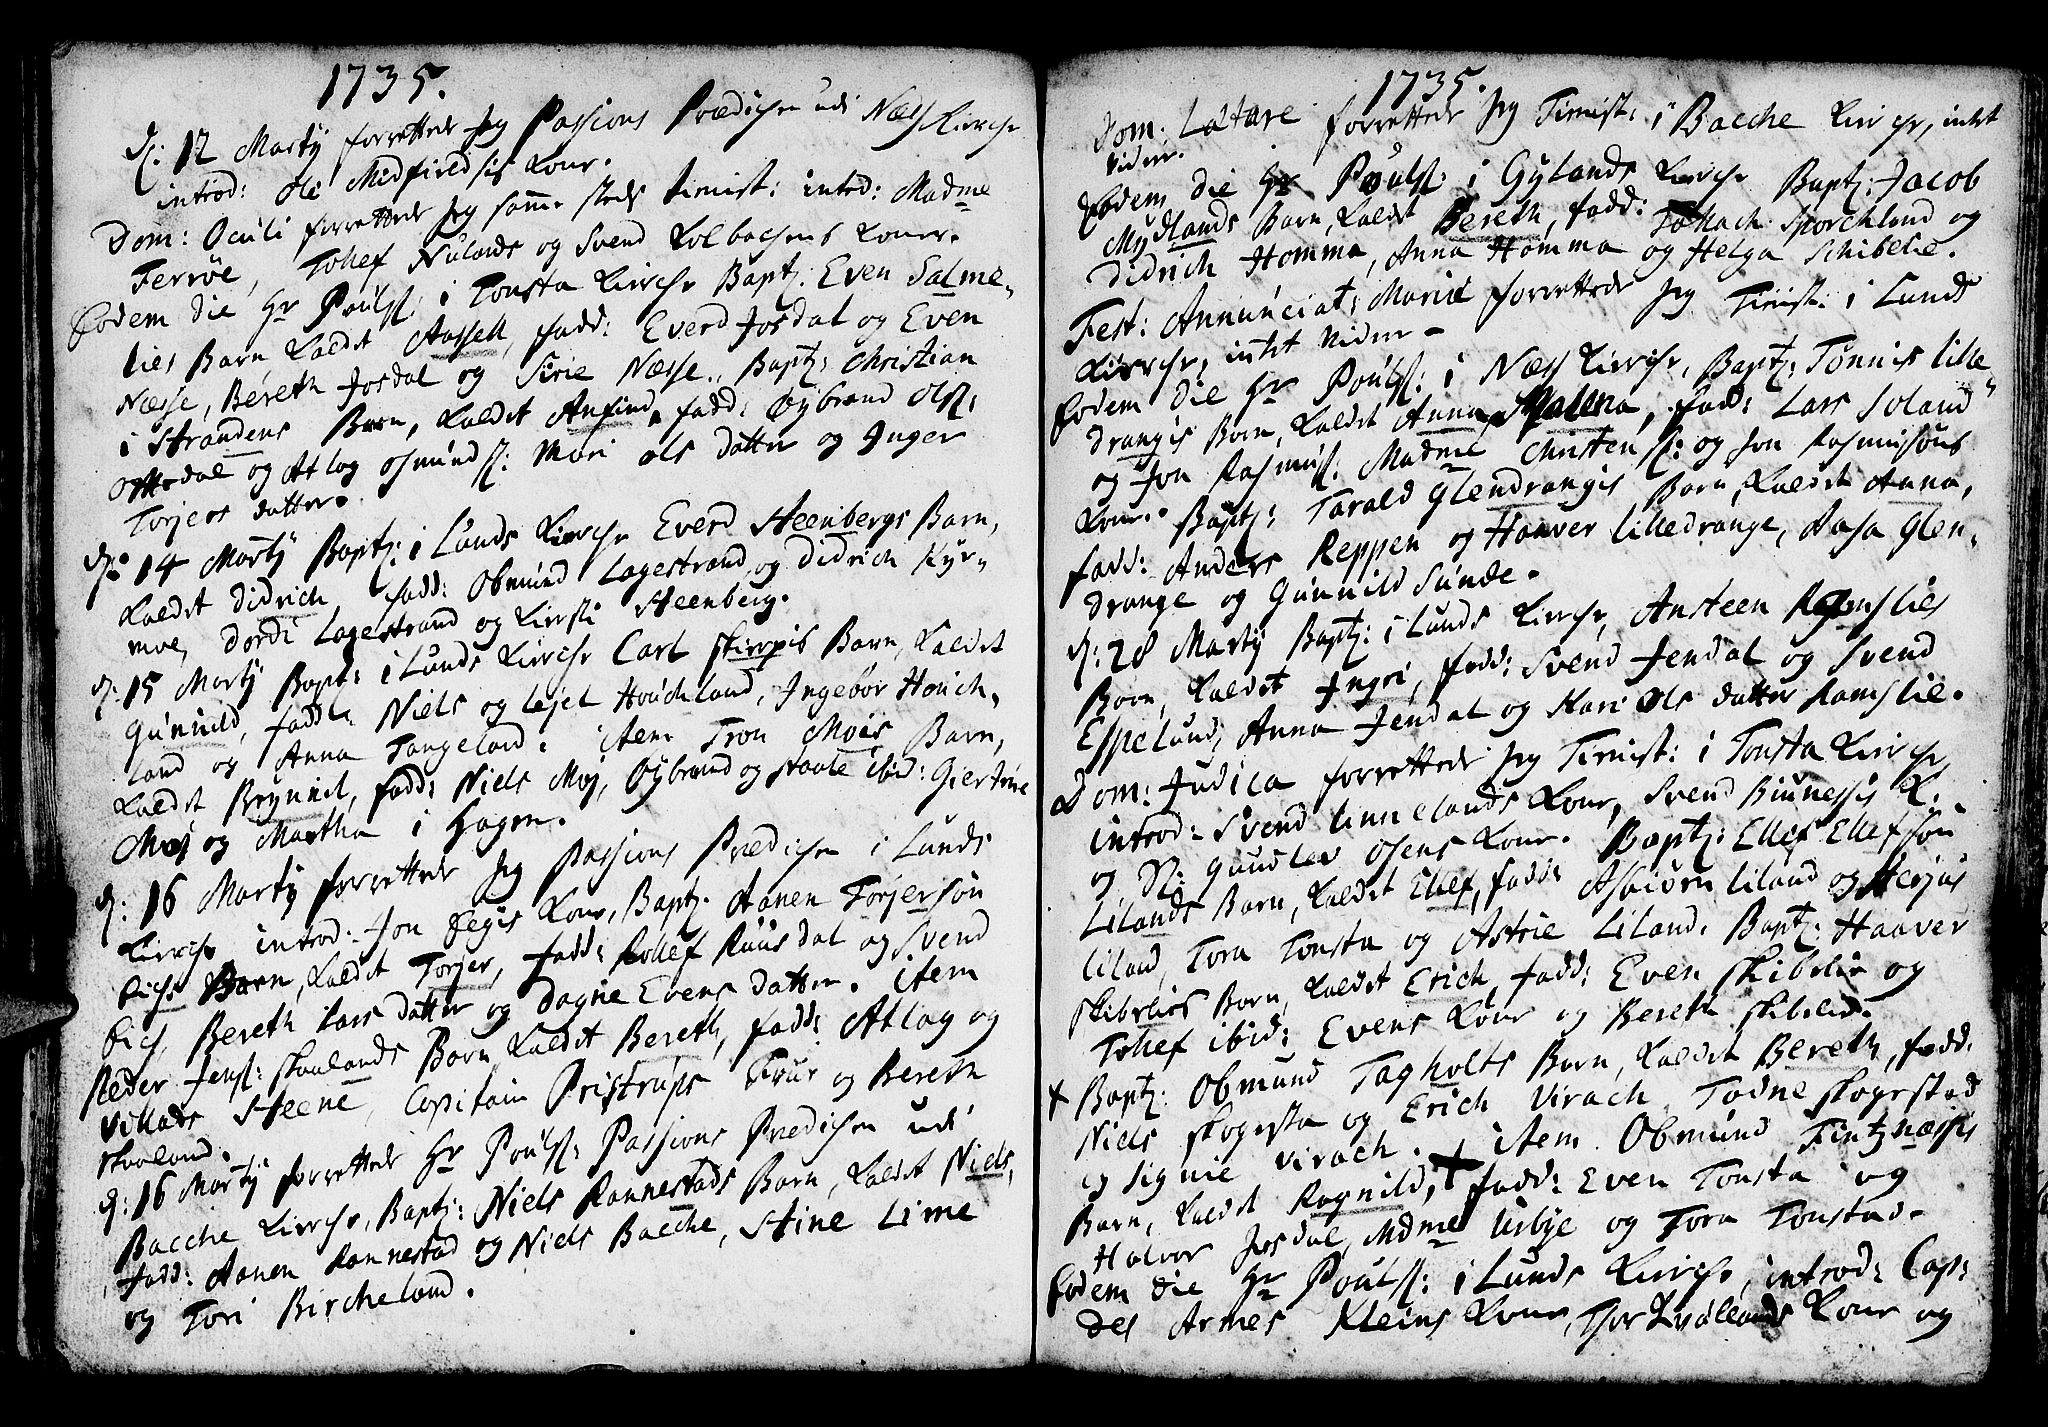 1735.
d: 12 Martÿ forrettede Jeg Passions Prædichen udi Næss Kirche
introd: Ole Midfieldsis Kone.
Dom: Oculi forrettede Jeg samme steds tienist: introd: Madme
Ferröe, Tohef Nulands og Svend Kolbachens Koner.
Eodem die Hr Poulss: i Tonsta Kirche Bapt: Even Salme-
lies Barn, Kaldet Aassell, fadd: Everd Josdal og Even
Næsse, Bereth Josdal og Sirie Næsse. Bapt: Christian
i Strandens Barn, Kaldet Anfind, fadd: Øybrand Olss:
Omdal og Atlag Osmundss: Mari Ols datter og Inger
Torjers datter.
d: 14 Martÿ Bapt: i Lunds Kirche Everd Steenbergs Barn,
Kaldet Didrich, fadd: Obmund Lagestrand og Didrich Kyr-
moe, Dordi Lagestrand og Kirsti Steenberg.
d. 15 Martÿ Bapt: i Lunds Kirche Carl Skierpis Barn, Kaldet
Gunnild, fadd: Niels og Lejel Houchland, Ingebor Houch-
land og Anna Tangeland. Item Tron Mois Barn,
Kaldet Brynnil, fadd: Niels Moj, Øybrand og Staale ibid: Giertrue
Moj og Martha i Hagen.
d: 16 Martÿ forrettede Jeg Passions Prædichen i Lunds
Kirche, introd: Jon Eegis Kone, Bapt. Aanen Torjersön
Eichs Barn, Kaldet Torjer, fadd: Rollef Ruusdal og Svend
Eich, Bereth Lars datter og Dagne Evens datter. Item
Peder Jenss: Skaalands Barn, Kaldet Bereth, fadd: Atlag og
Villads Steene, Capitain Pristrups Frue og Bereth
Skaaland.
d: 16 Martÿ forrettede Hr Poulss: Passions Prædichen udi
Bacche Kirche, Bapt: Niels Rannestads Barn, Kaldet Niels,
fadd: Aanen Rannestad og Niels Bacche, Stine Lime
og Tori Bircheland.
1735.
Dom: Lætare forrettede Jeg Tienist: i Bacche Kirche, intet
videre.
Eodem die Hr Poulss: i Gylands Kirche Bapt: Jacob
Mydlands Barn, Kaldet Bereth, fadd: Tollach Sporchland og
Didrich Homma, Anna Homma og Helga Schibelie.
Fest: Annunciat: Mariæ forrettede Jeg Tienist: i Lunds
Kirche, intet videre -
Eodem die Hr Poulss: i Næss Kirche, Bapt: Tønnis Lille
drangis Barn, Kaldet Anna Malena, fadd: Lars Soland
og Jon Rasmuss: Madme Christenss: og Jon Rasmusöns
Kone. Bapt: Tarald Glendrangis Barn, Kaldet Anna,
fadd: Anders Reppen og Haaver Lilledrange, Aasa Glen-
drange og Gunnild Sunde.
d: 28 Martÿ Bapt: i Lunds Kirche, Ansteen Ramslies
Barn, Kaldet Ingri, fadd: Svend Jendal og Svend
Eppeland, Anna Jendal og Kari Ols datter Ramslie.
Dom: Judica forrettede Jeg Tienist: i Tonsta Kirche,
introd: Svend Linnelands Kone, Svend Biunessis K.
og Gundlev Osens Kone. Bapt: Ellef Ellefsön
Lilands Barn, Kaldet Ellef, fadd: Asbiörn Liland og Herjus
Liland, Tora Tonsta og Astrie Liland. Bapt: Haaver
Skibelies Barn, Kaldet Erich, fadd: Even Skibelie og
Tohef ibid: Evens Kone og Bereth Skibelie.
+ Bapt: Obmund Tagholts Barn, Kaldet Bereth, fadd:
Niels Skogesta og Erich Virach, Todne Skogestad
og Signie Virach. Item Obmund Fintznæssis
Barn, Kaldet Ragnild, + fadd: Even Tonsta og
Halvor Josdal, Mdme Usbye og Tora Tonstad.
Eodem die Hr Poulss: i Lunds Kirche, introd: Cap:
des Armes Kleins Kone, Thor Kvællands Kone og